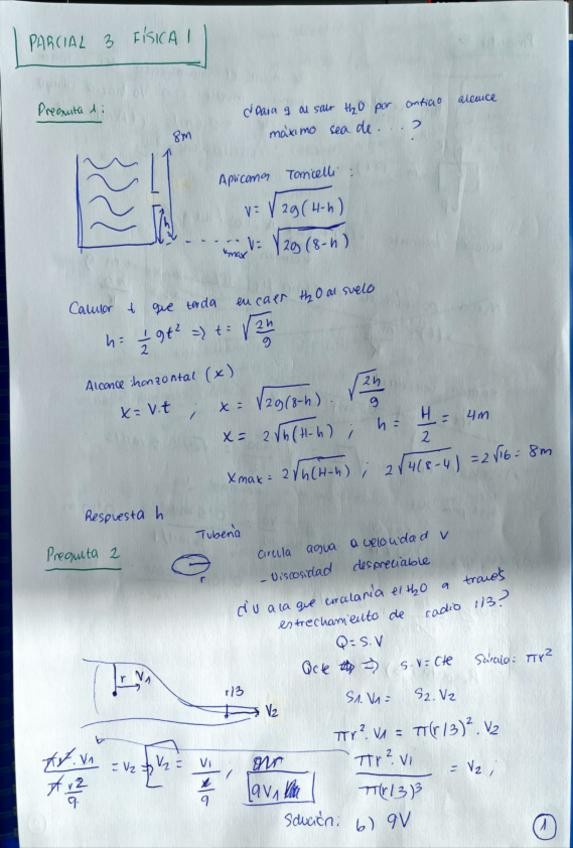 PARCIAL 3 FÍSICA I
Pregunta 1:
¿Para q al salir H₂O por orificio alcance
máximo sea de . . . ?
8m
h
Aplicamos Torricelli :
V = √2g(H-h)
xmax V = √2g(8-h)
Calular t que tarda en caer H₂O al suelo
h = 1/2 gt² => t = √2h/g
Alcance horizontal (x)
X = V.t , x = √2g(8-h) . √2h/g
x = 2√h(H-h) ; h = H/2 = 4m
Xmax = 2√h(H-h) ; 2√4(8-4) = 2√16 = 8m
Respuesta h
Pregunta 2
Tubería
r
circula agua a velocidad V
- Viscosidad despreciable
¿V a la que circularía el H₂O a través
estrechamiento de radio r/3?
Q = S.V
Qcte => S.V = cte Scírculo: πr²
r V₁
r/3
V₂
S₁.V₁ = S₂.V₂
πr².V₁ = π(r/3)².V₂
πr².V₁ / π r²/9 = V₂ => V₂ = V₁ / 1/9 ; 9V₁
πr².V₁ / π(r/3)³ = V₂ ;
Solución: b) 9V
1